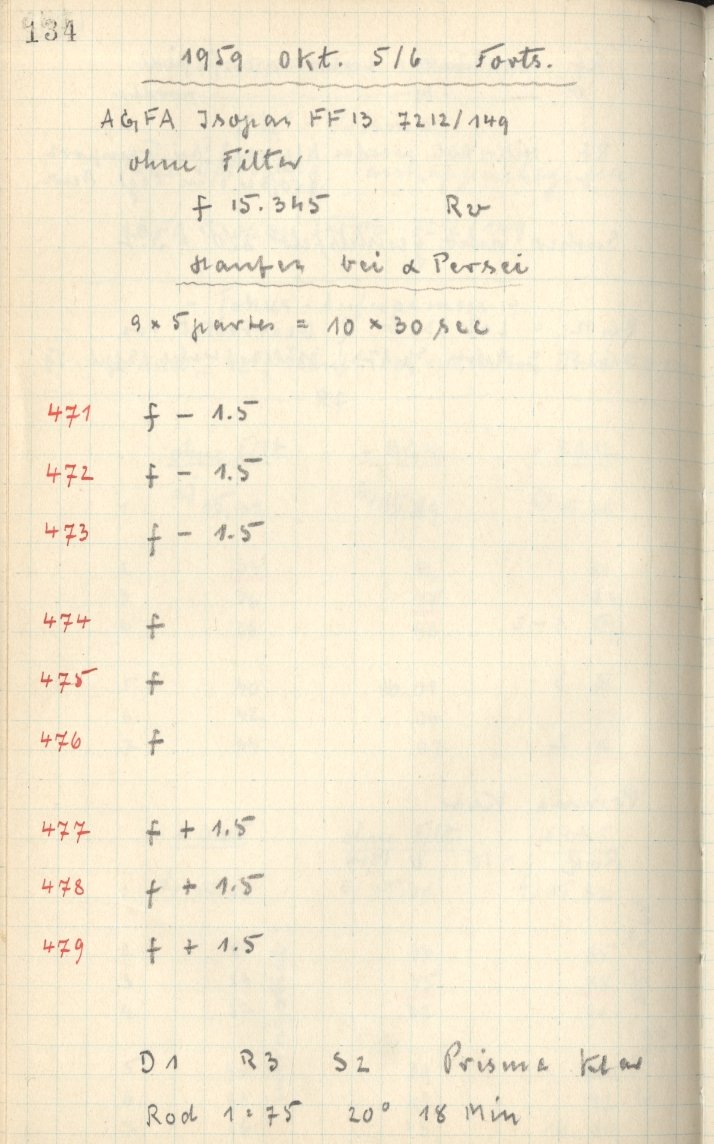 134
1959 Okt. 5/6 Forts.
AGFA Isopan FF 13 7212/149
ohne Filter
f 15.345 Rv
Haufen bei α Persei
9 × 5 partes = 10 × 30 sec
471 f – 1.5
472 f – 1.5
473 f – 1.5
474 f
475 f
476 f
477 f + 1.5
478 f + 1.5
479 f + 1.5
D1 R3 S2 Prisma klar
Rod 1:75 20° 18 Min